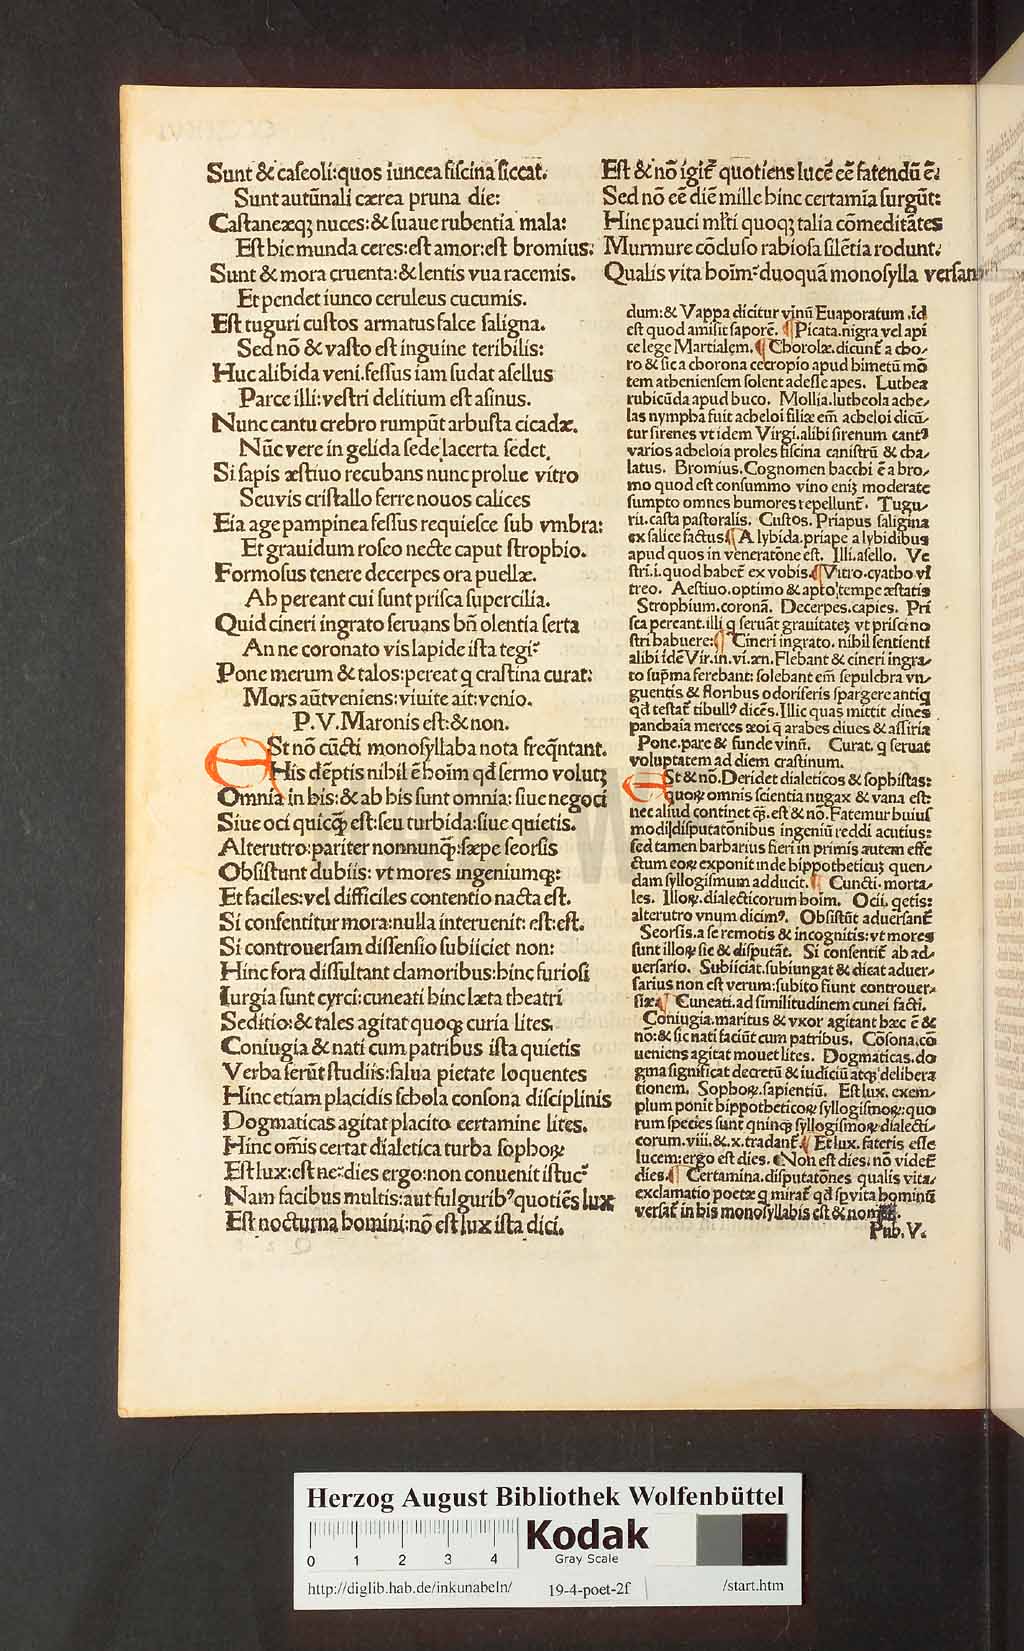 Sunt & caseoli: quos iuncea fiscina siccat.
Sunt autũnali cærea pruna die:
Castaneæqꝫ nuces: & suaue rubentia mala:
Est hic munda ceres: est amor: est bromius:
Sunt & mora cruenta: & lentis vua racemis.
Et pendet iunco ceruleus cucumis.
Est tuguri custos armatus falce saligna.
Sed nõ & vasto est inguine teribilis:
Huc alibida veni. fessus iam sudat asellus
Parce illi: vestri delitium est asinus.
Nunc cantu crebro rumpũt arbusta cicadæ.
Nũc vere in gelida sede lacerta sedet.
Si sapis æstiuo recubans nunc prolue vitro
Seuvis cristallo ferre nouos calices
Eia age pampinea fessus requiesce sub vmbra:
Et grauidum roseo necte caput strophio.
Formosus tenere decerpes ora puellæ.
Ah pereant cui sunt prisca supercilia.
Quid cineri ingrato seruans bñ olentia serta
An ne coronato vis lapide ista tegi?
Pone merum & talos: pereat q crastina curat:
Mors aũt veniens: viuite ait: venio.
P. V. Maronis est: & non.
ESt nõ cũcti monosyllaba nota freqñtant.
His dẽptis nihil ẽ hoĩm qđ sermo volutꝫ
Omnia in his: & ab his sunt omnia: siue negoci
Siue oci quicq̃ est: seu turbida: siue quietis.
Alterutro: pariter nonnunq̃: sæpe seorsis
Obsistunt dubiis: vt mores ingeniumqꝫ:
Et faciles: vel difficiles contentio nacta est.
Si consentitur mora: nulla interuenit: est: est.
Si controuersam dissensio subiiciet non:
Hinc fora dissultant clamoribus: hinc furiosi
Iurgia sunt cyrci: cuneati hinc læta theatri
Seditio: & tales agitat quoqꝫ curia lites.
Coniugia & nati cum patribus ista quietis
Verba serũt studiis: salua pietate loquentes
Hinc etiam placidis schola consona disciplinis
Dogmaticas agitat placito certamine lites.
Hinc om̃is certat dialetica turba sophoꝝ
Est lux: est ne? dies ergo: non conuenit istuc?
Nam facibus multis: aut fulgurib⁹ quotiẽs lux
Est nocturna homini: nõ est lux ista dici.
Est & nõ igit̃ quotiens lucẽ eẽ fatendũ ẽ:
Sed nõ eẽ diẽ mille hinc certamĩa surgũt:
Hinc pauci ml̃ti quoqꝫ talia cõmeditãtes
Murmure cõcluso rabiosa silẽtia rodunt:
Qualis vita hoĩm? duo quã monosylla versan
dum: & Vappa dicitur vinũ Euaporatum .id
est quod amisit saporẽ. ¶ Picata. nigra vel api
ce lege Martialem. ¶ Chorolæ. dicunt̃ a cho/
ro & sic a chorona cecropio apud himetũ mõ
tem atheniensem solent adesse apes. Luthea
rubicũda apud huco. Mollia. lutheola ache/
las nympha fuit acheloi filiæ em̃ acheloi dicũ/
tur sirenes vt idem Virgi. alibi sirenum cant⁹
varios acheloia proles fiscina canistrũ & cha/
latus. Bromius. Cognomen bacchi ẽ a bro/
mo quod est consummo vino eniꝫ moderate
sumpto omnes humores repellunt̃. Tugu/
rii. casta pastoralis. Custos. Priapus saligina
ex salice factus. ¶ A lybida. priape a lybidibus
apud quos in veneratõne est. Illi. asello. Ve
stri. i. quod habet̃ ex vobis. ¶ Vitro. cyatho vi
treo. Aestiuo. optimo & apto tempe æstatis
Strophium. coronã. Decerpes. capies. Pri
sca pereant. illi q seruãt grauitateꝫ vt prisci no
stri habuere: ¶ Cineri ingrato. nihil sentienti
alibi idẽ Vir. in. vi. æn. Flebant & cineri ingra/
to sup̃ma ferebant: solebant em̃ sepulchra vn/
guentis & floribus odoriferis spargere antiq
qđ testat̃ tibull⁹ dicẽs. Illic quas mittit dines
panchaia merces æoi q̃ arabes diues & assiria
Pone. pare & funde vinũ. Curat. q seruat
voluptatem ad diem crastinum.
ESt & nõ. Deridet dialeticos & sophistas:
quoꝝ omnis scientia nugax & vana est:
nec aliud continet q̃. est & nõ. Fatemur huius
modi disputatõnibus ingeniũ reddi acutius:
sed tamen barbarius fieri in primis autem effe
ctum eoꝝ exponit inde hippotheticuꝫ quen/
dam syllogismum adducit. ¶ Cuncti. morta/
les. Illoꝝ. dialecticorum hoĩm. Ocii. qetis:
alterutro vnum dicim⁹. Obsistũt aduersant̃
Seorsis. a se remotis & incognitis: vt mores
sunt illoꝝ sie & disputãt. Si consentit̃ ab ad/
uersario. Subiiciat. subiungat & dicat aduer/
sarius non est verum: subito fiunt controuer/
siæ. ¶ Cuneati. ad similitudinem cunei facti.
Coniugia. maritus & vxor agitant hæc ẽ &
nõ: & sic nati faciũt cum patribus. Cõsona. cõ
ueniens agitat mouet lites. Dogmaticas. do
gma significat decretũ & iudiciũ atqꝫ delibera
tionem. Sophoꝝ. sapientiũ. Est lux. exem/
plum ponit hippotheticoꝝ syllogismoꝝ: quo
rum species sunt qninqꝫ syllogismoꝝ dialecti/
corum. viii. & .x. tradant̃. ¶ Et lux. fateris esse
lucem: ergo est dies. ¶ Non est dies. nõ videt̃
dies. ¶ Certamina. disputatõnes qualis vita/
exclamatio poetæ q mirat̃ qđ sp̃ vita hominũ
versat̃ in his monosyllabis est & non.
Pub. V.
Herzog August Bibliothek Wolfenbüttel
0 1 2 3 4
Kodak
Gray Scale
http://diglib.hab.de/inkunabeln/ 19-4-poet-2f /start.htm